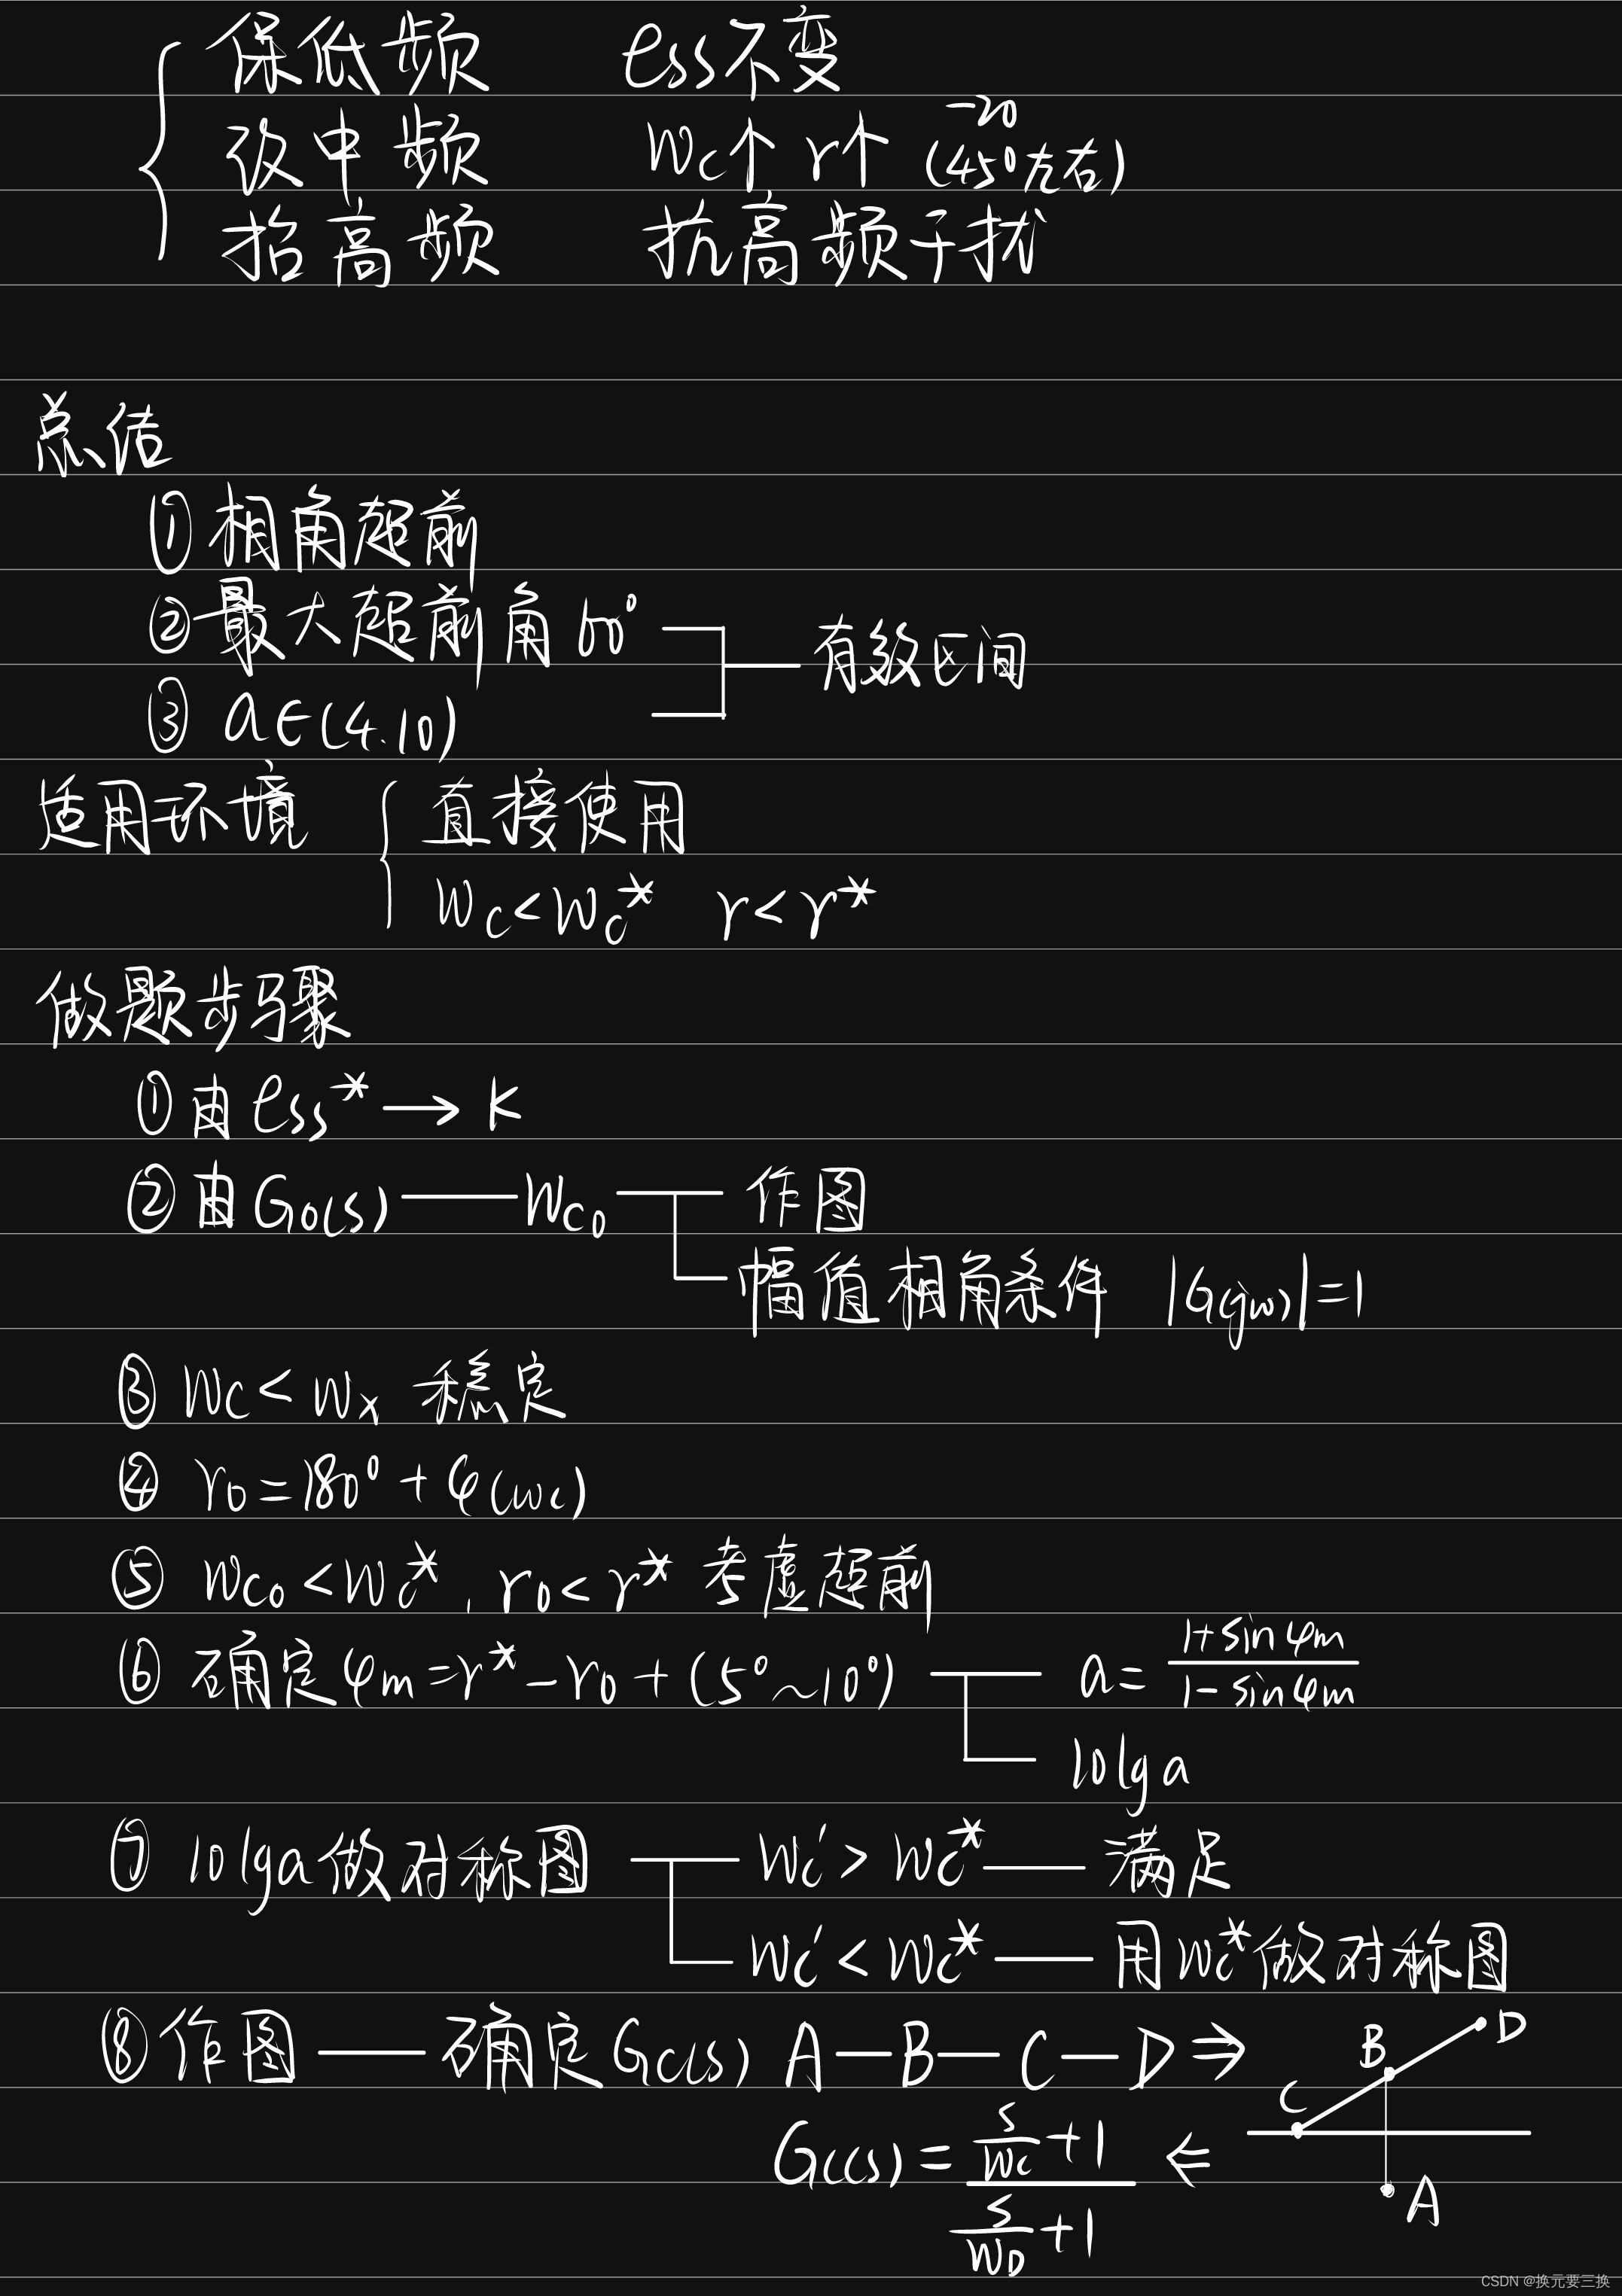 保低频 ess不变
改中频 Wc↑ r↑ -20 (45°左右)
抬高频 抗高频干扰
总结
① 相角超前
② 最大超前角 60°
③ a∈(4.10)
有效区间
适用环境 直接使用
Wc<Wc* r<r*
做题步骤
① 由 ess* → K
② 由G0(s) — Wc0 作图
幅值相角条件 |G(jw)|=1
③ Wc < Wx 稳定
④ r0=180°+φ(wc)
⑤ Wc0<Wc*, r0<r* 考虑超前
⑥ 确定φm=r*-r0+(5°~10°) a= 1+sinφm / 1-sinφm
10lga
⑦ 10lga做对称图 Wc'>Wc* — 满足
Wc'<Wc* — 用Wc*做对称图
⑧ 作图 — 确定Gc(s) A—B—C—D ⇒
C B D A
Gc(s)= s/Wc +1 / s/WD +1 ⇐
CSDN @换元要三换